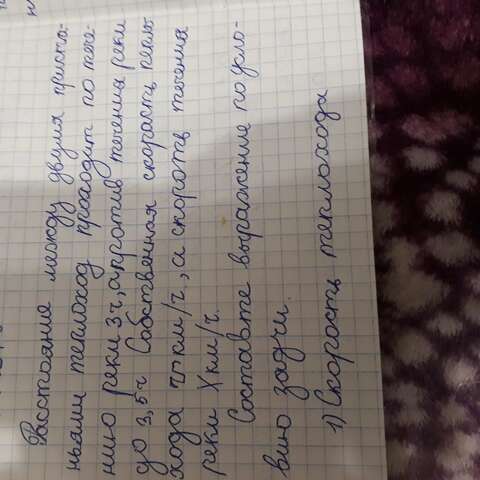 Расстояние между двумя приста-
ньями теплоход проходит по тече-
нию реки 3 ч, а против течения реки
до 3,5 ч Собственная скорость тепло
хода км/ч., а скорость течения
реки X км/ч.
Составте выражение по усло-
вию задчи.
1) Скорость теплохода